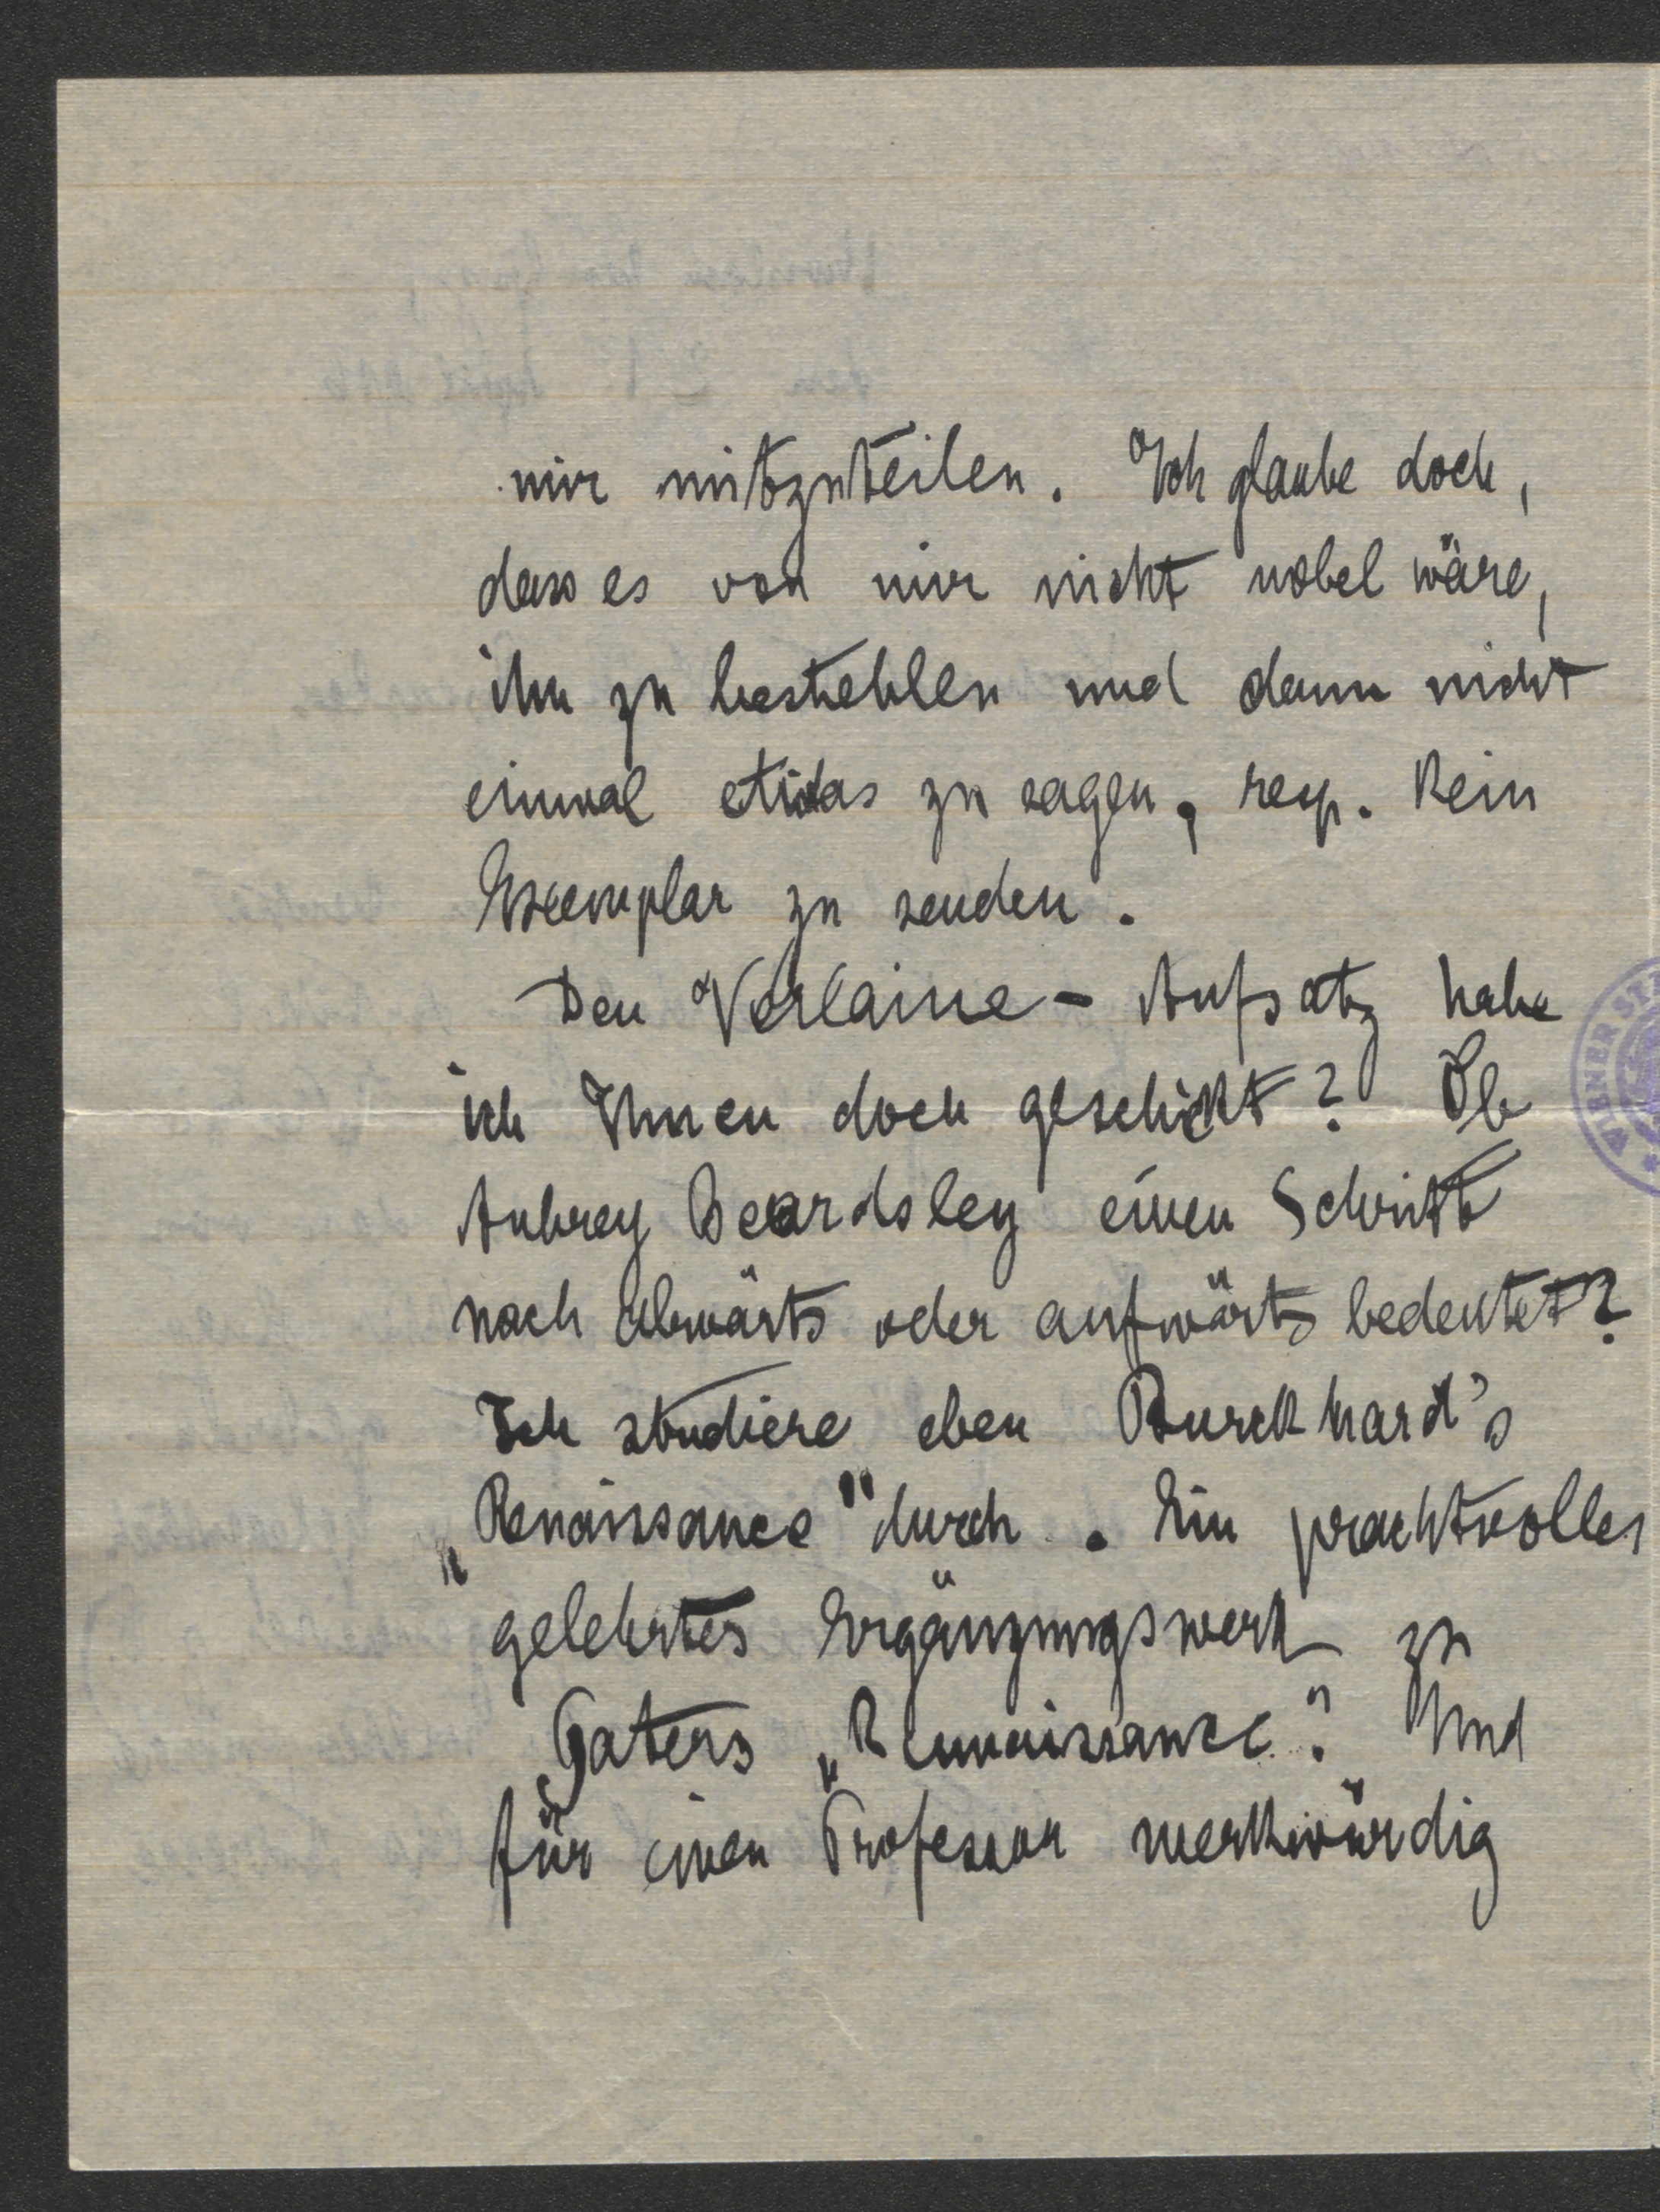 mir mitzuteilen. Ich glaube doch,
dass es von mir nicht nobel wäre,
ihn zu bestehlen und dann nicht
einmal etwas zu sagen, resp. kein
Exemplar zu senden.
Den Verlaine - Aufsatz habe
ich Ihnen doch geschickt? Ob
Aubrey Beardsley einen Schritt
nach abwärts oder aufwärts bedeutet?
Ich studiere eben Burckhard's
„Renaissance" durch. Ein prachtvolles
gelehrtes Ergänzungswerk zu
Paters „Rennaissance". Und
für einen Professor merkwürdig
WIENER ST